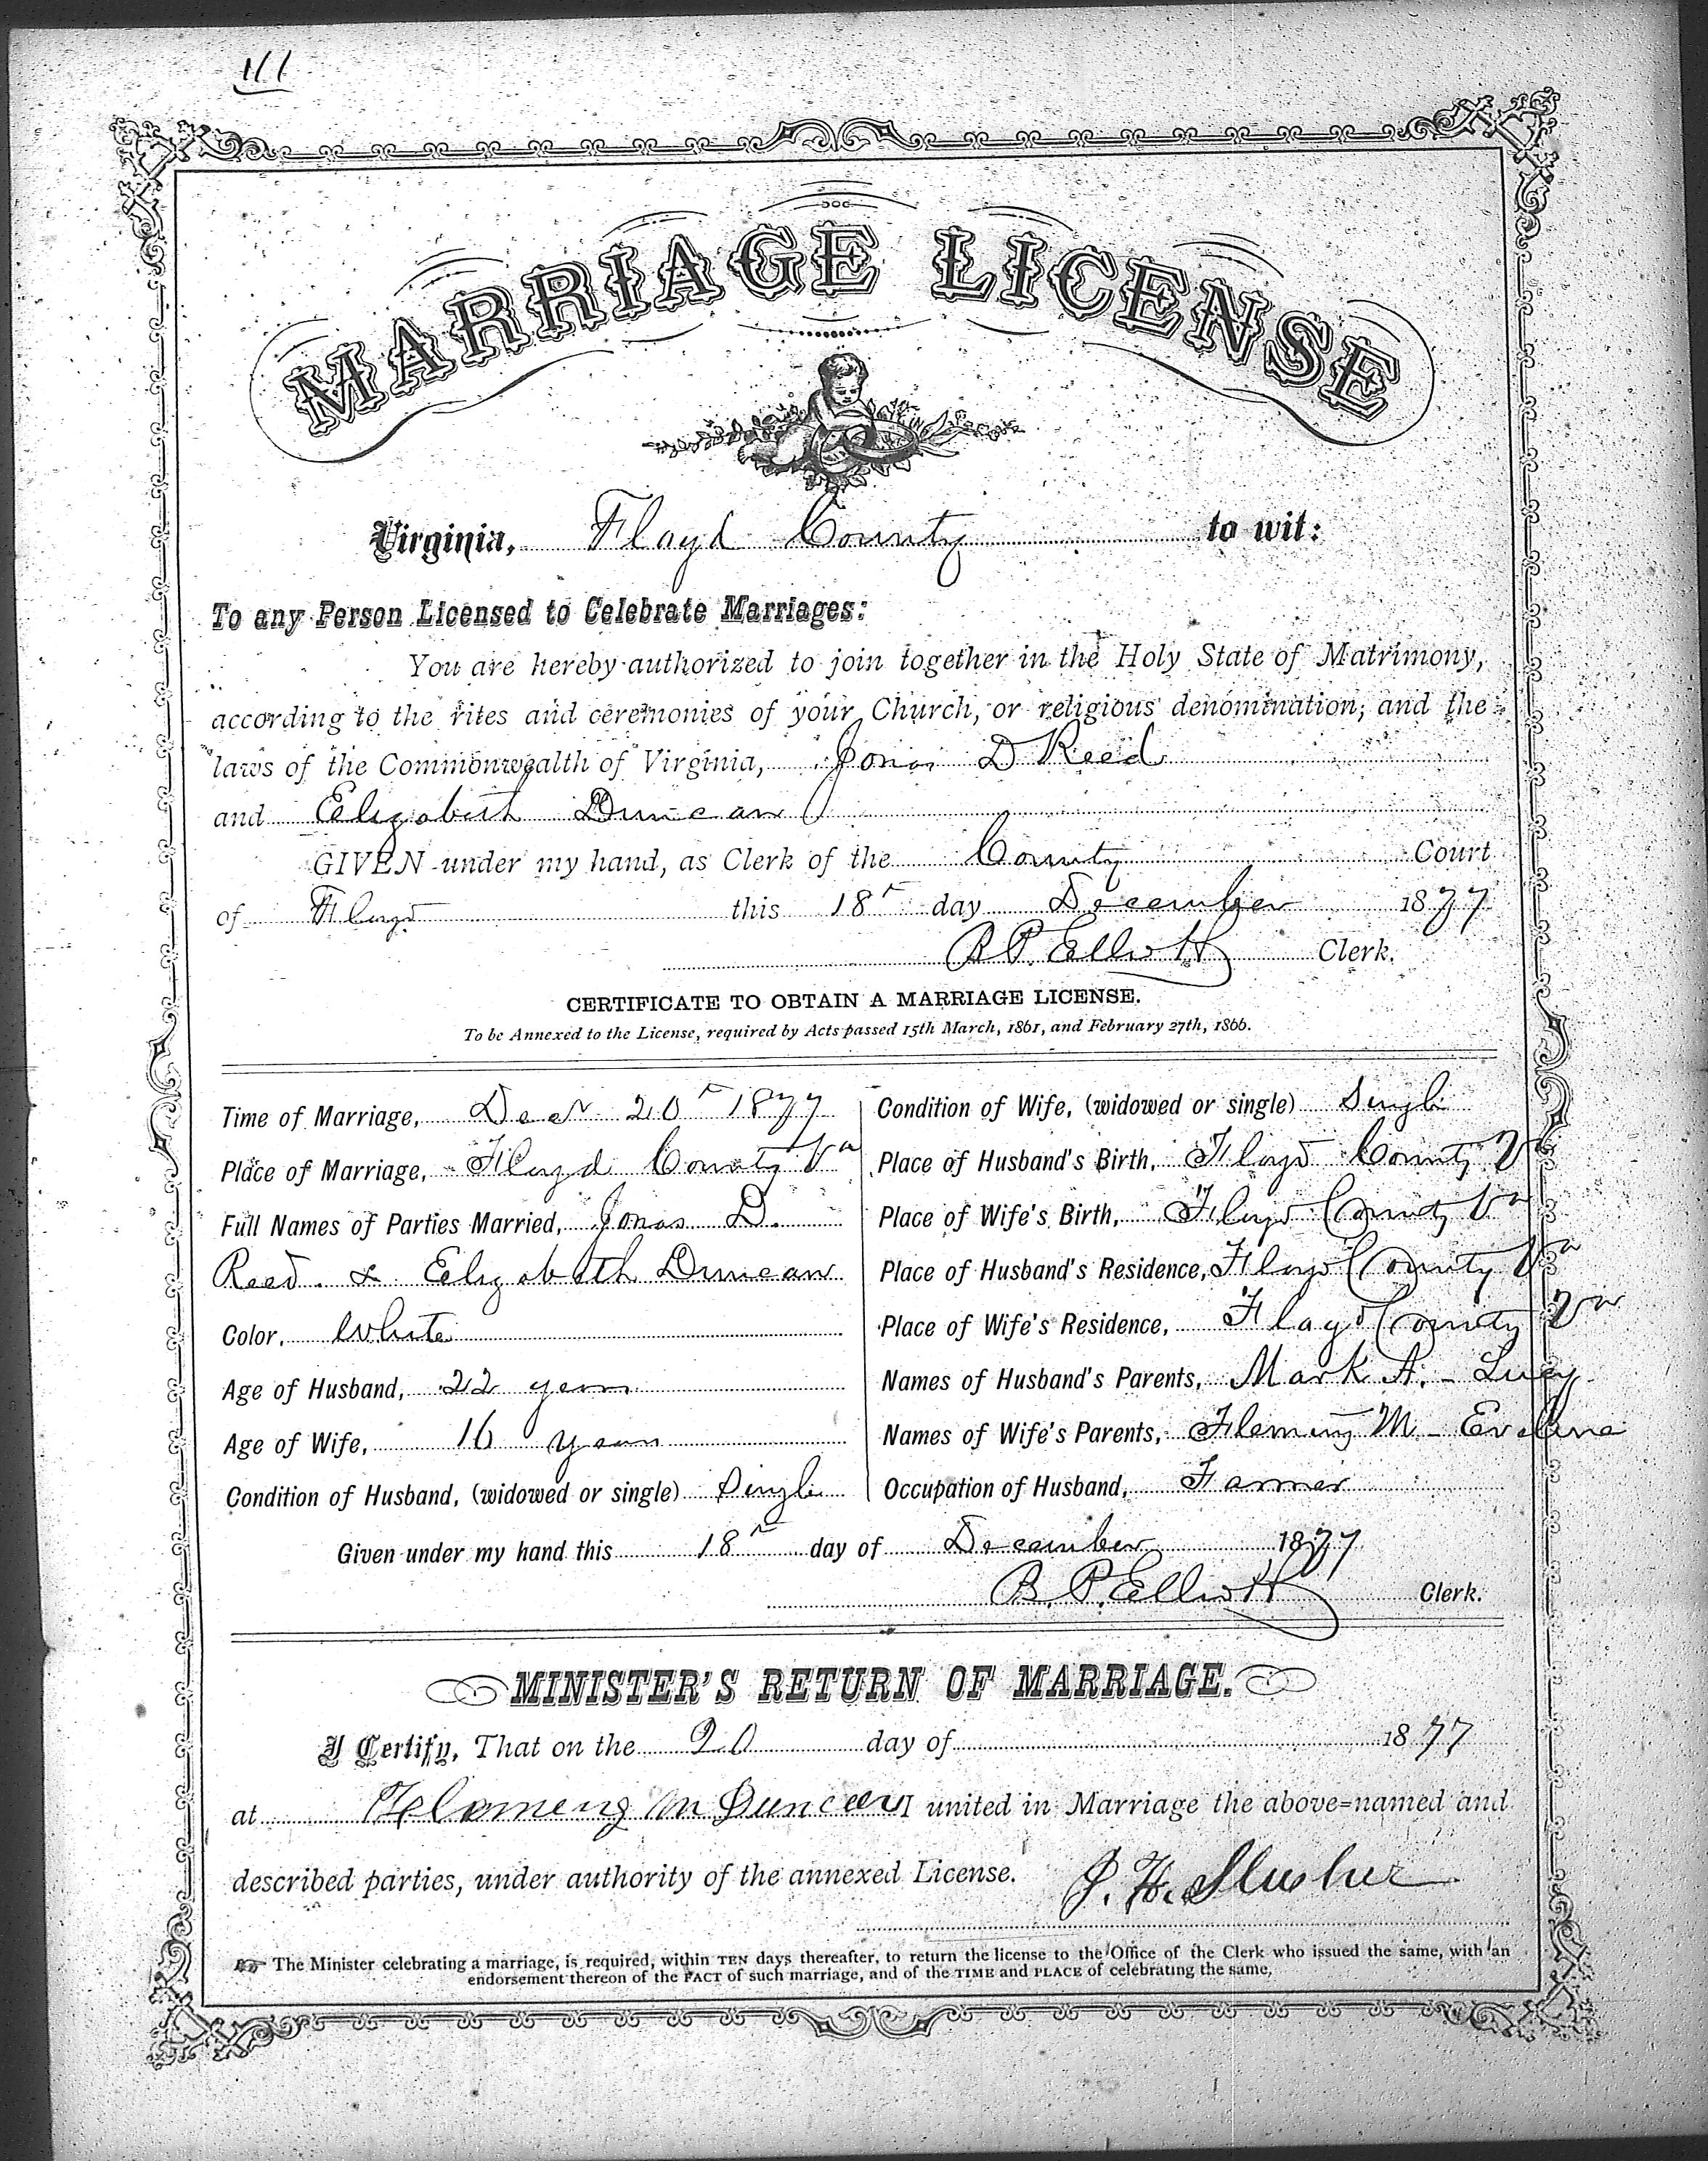 111
MARRIAGE LICENSE
Virginia, Floyd County to wit:
To any Person Licensed to Celebrate Marriages:
You are hereby authorized to join together in the Holy State of Matrimony,
according to the rites and ceremonies of your Church, or religious denomination, and the
laws of the Commonwealth of Virginia, Jonas D Reed
and Elizabeth Duncan
GIVEN under my hand, as Clerk of the County Court
of Floyd this 18th day December 1877
B P. Elliott Clerk.
CERTIFICATE TO OBTAIN A MARRIAGE LICENSE.
To be Annexed to the License, required by Acts passed 15th March, 1861, and February 27th, 1866.
Time of Marriage, Decr 20th 1877
Place of Marriage, Floyd County Va
Full Names of Parties Married, Jonas D.
Reed. & Elizabeth Duncan
Color, White
Age of Husband, 22 years
Age of Wife, 16 years
Condition of Husband, (widowed or single) Single
Condition of Wife, (widowed or single) Single
Place of Husband's Birth, Floyd County Va
Place of Wife's Birth, Floyd County Va
Place of Husband's Residence, Floyd County Va
Place of Wife's Residence, Floyd County Va
Names of Husband's Parents, Mark A. - Lucy
Names of Wife's Parents, Fleming M - Eveline
Occupation of Husband, Farmer
Given under my hand this 18th day of December 1877
B. P. Elliott Clerk.
MINISTER'S RETURN OF MARRIAGE.
I Certify, That on the 20 day of 1877
at Flemeng M Duncan I united in Marriage the above=named and
described parties, under authority of the annexed License. J. H. Slusher
The Minister celebrating a marriage, is required, within TEN days thereafter, to return the license to the Office of the Clerk who issued the same, with an
endorsement thereon of the FACT of such marriage, and of the TIME and PLACE of celebrating the same,